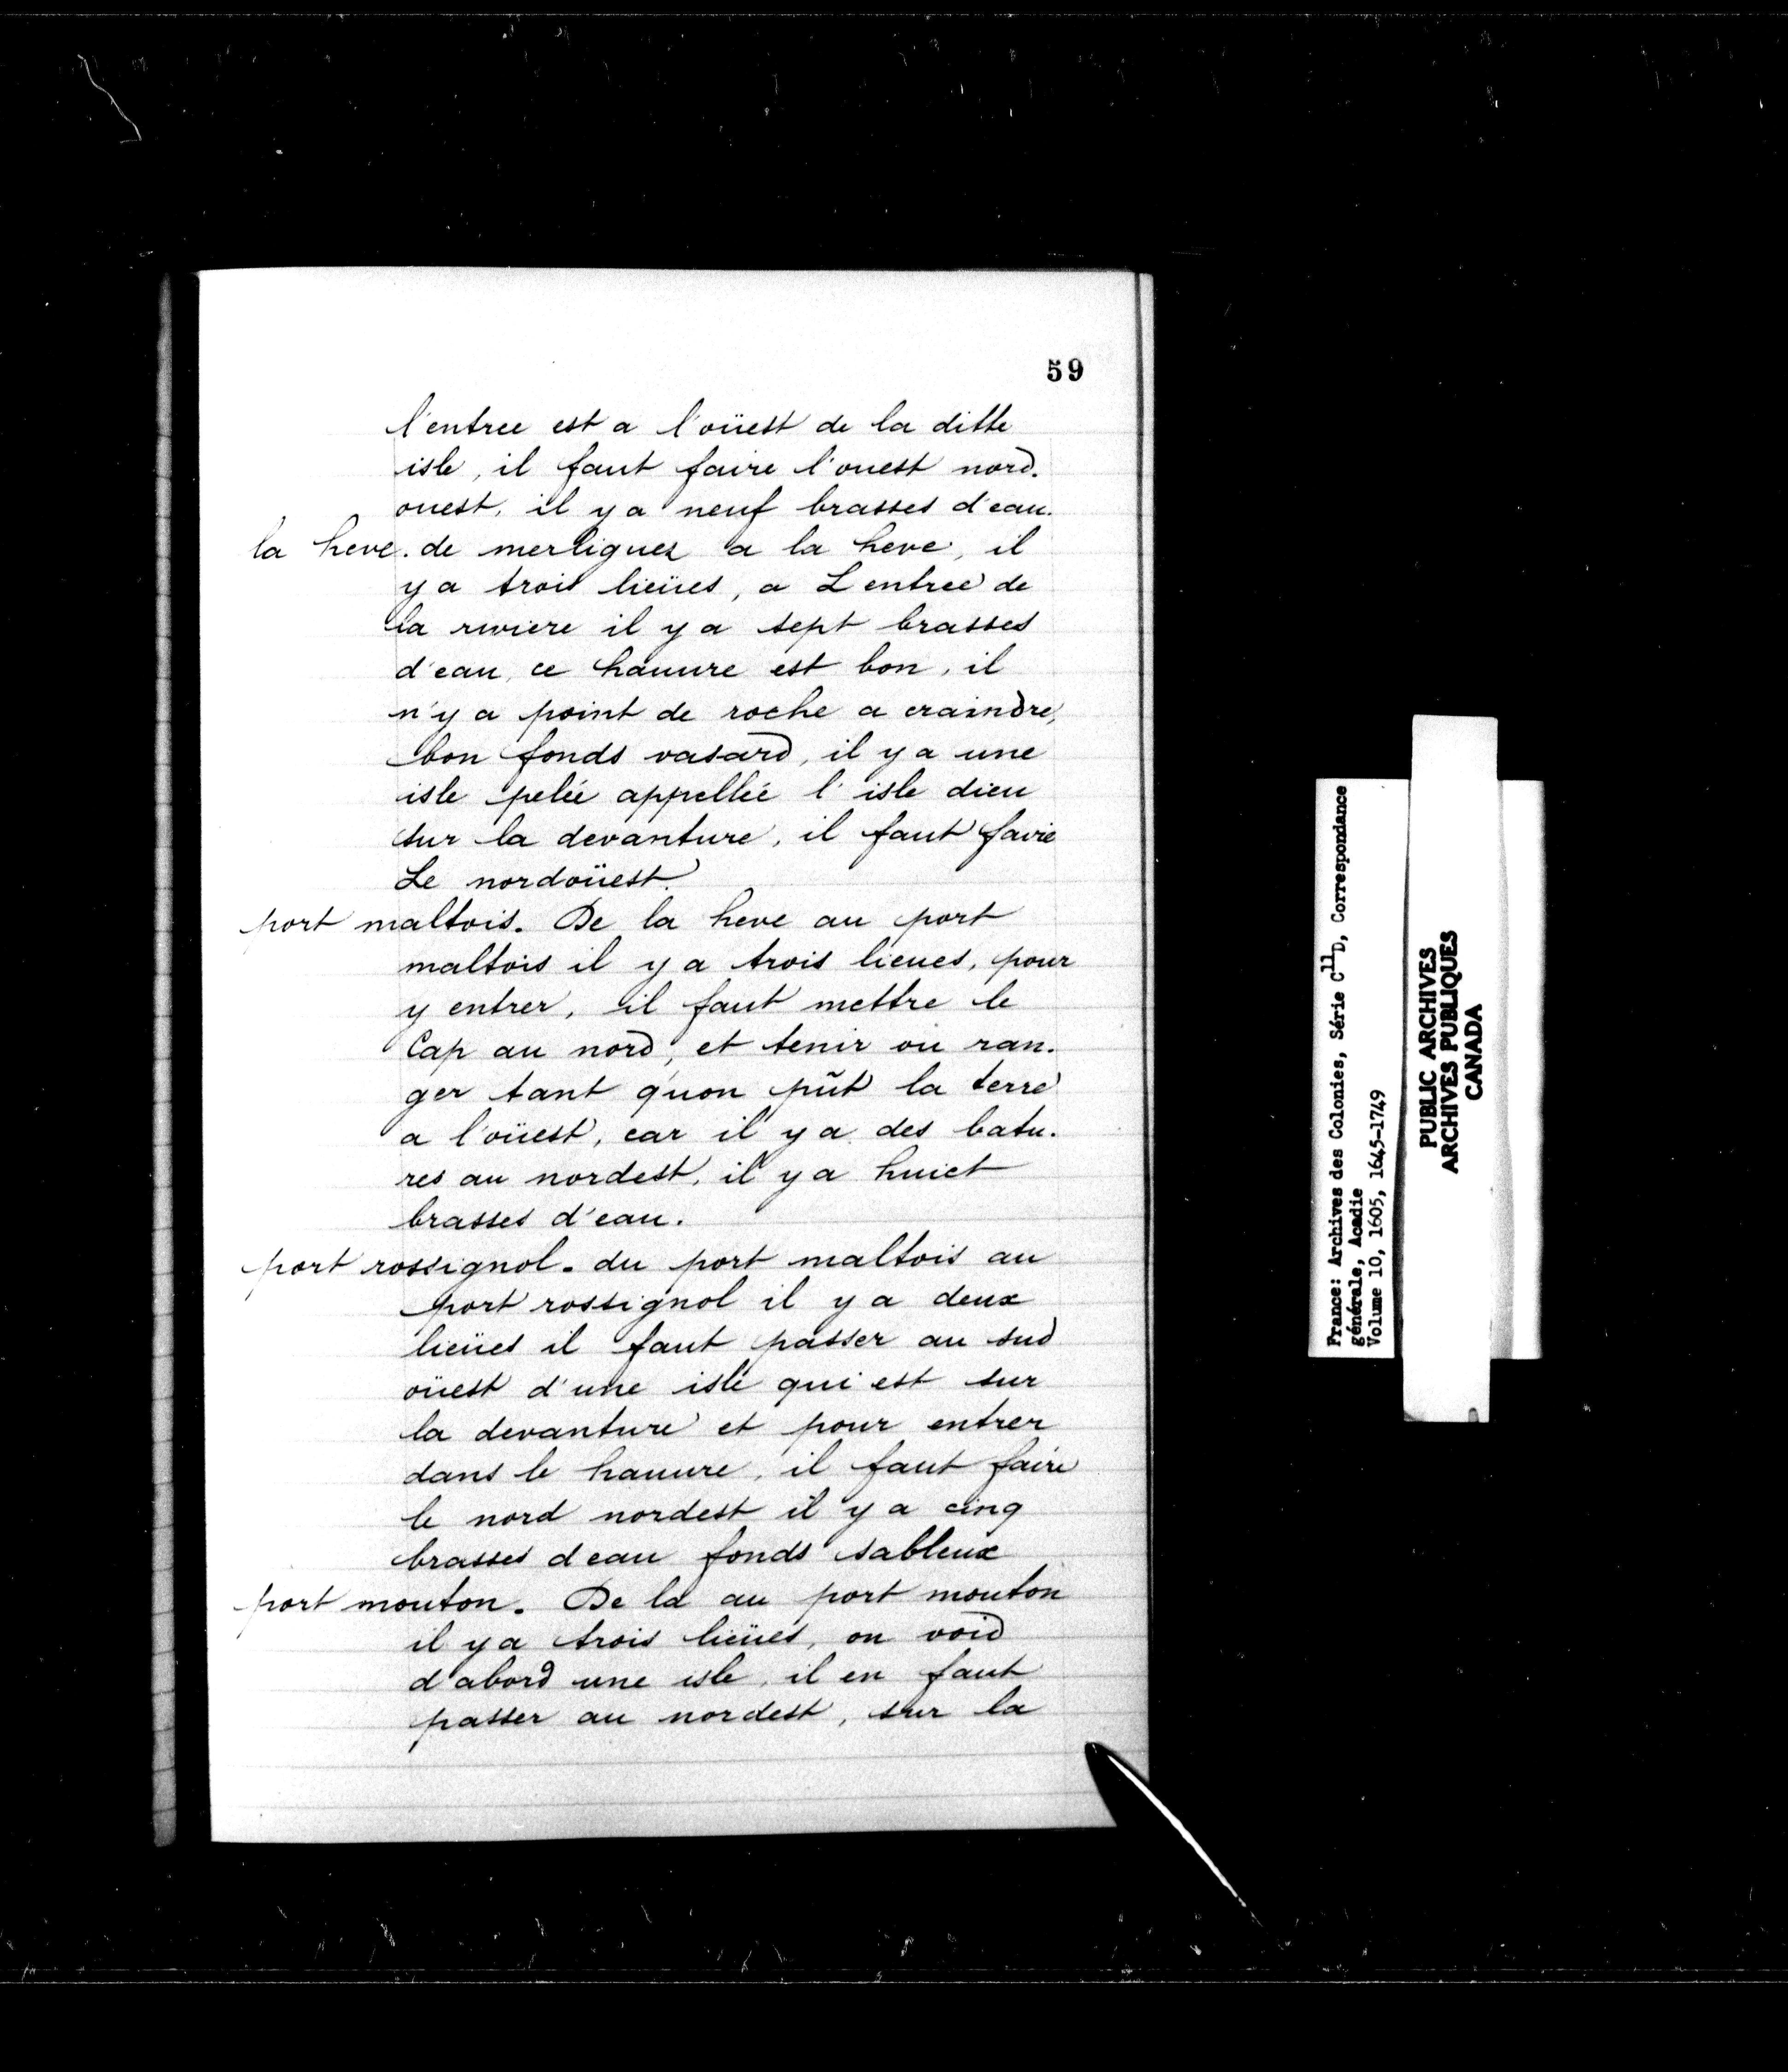 59
l'entree est a l'oüest de la ditte
isle, il faut faire l'ouest nord.
ouest, il y a neuf brasses d'eau.
la heve. de merliguez a la heve, il
y a trois lieües, a L entree de
la riviere il y a sept brasses
d'eau, ce hauure est bon, il
n'y a point de roche a craindre,
bon fonds vasard, il y a une
isle pelée appellée l'isle dieu
sur la devanture, il faut faire
Le nordoüest.
port maltois. De la heve au port
maltois il y a trois lieues, pour
y entrer, il faut mettre le
Cap au nord, et tenir ou ran.
ger tant quon pût la terre
a l'oüest, car il y a des batu.
res au nordest, il y a huict
brasses d'eau.
port rossignol. du port maltois au
port rossignol il y a deux
lieües il faut passer au sud
oüest d'une isle qui est sur
la devanture et pour entrer
dans le hauure, il faut faire
le nord nordest il y a cinq
brasses deau fonds sableux
port mouton. De la au port mouton
il y a trois lieües, on void
d'abord une isle, il en faut
passer au nordest, sur la
France: Archives des Colonies, Série C11D, Correspondance
générale, Acadie
Volume 10, 1605, 1645-1749
PUBLIC ARCHIVES
ARCHIVES PUBLIQUES
CANADA